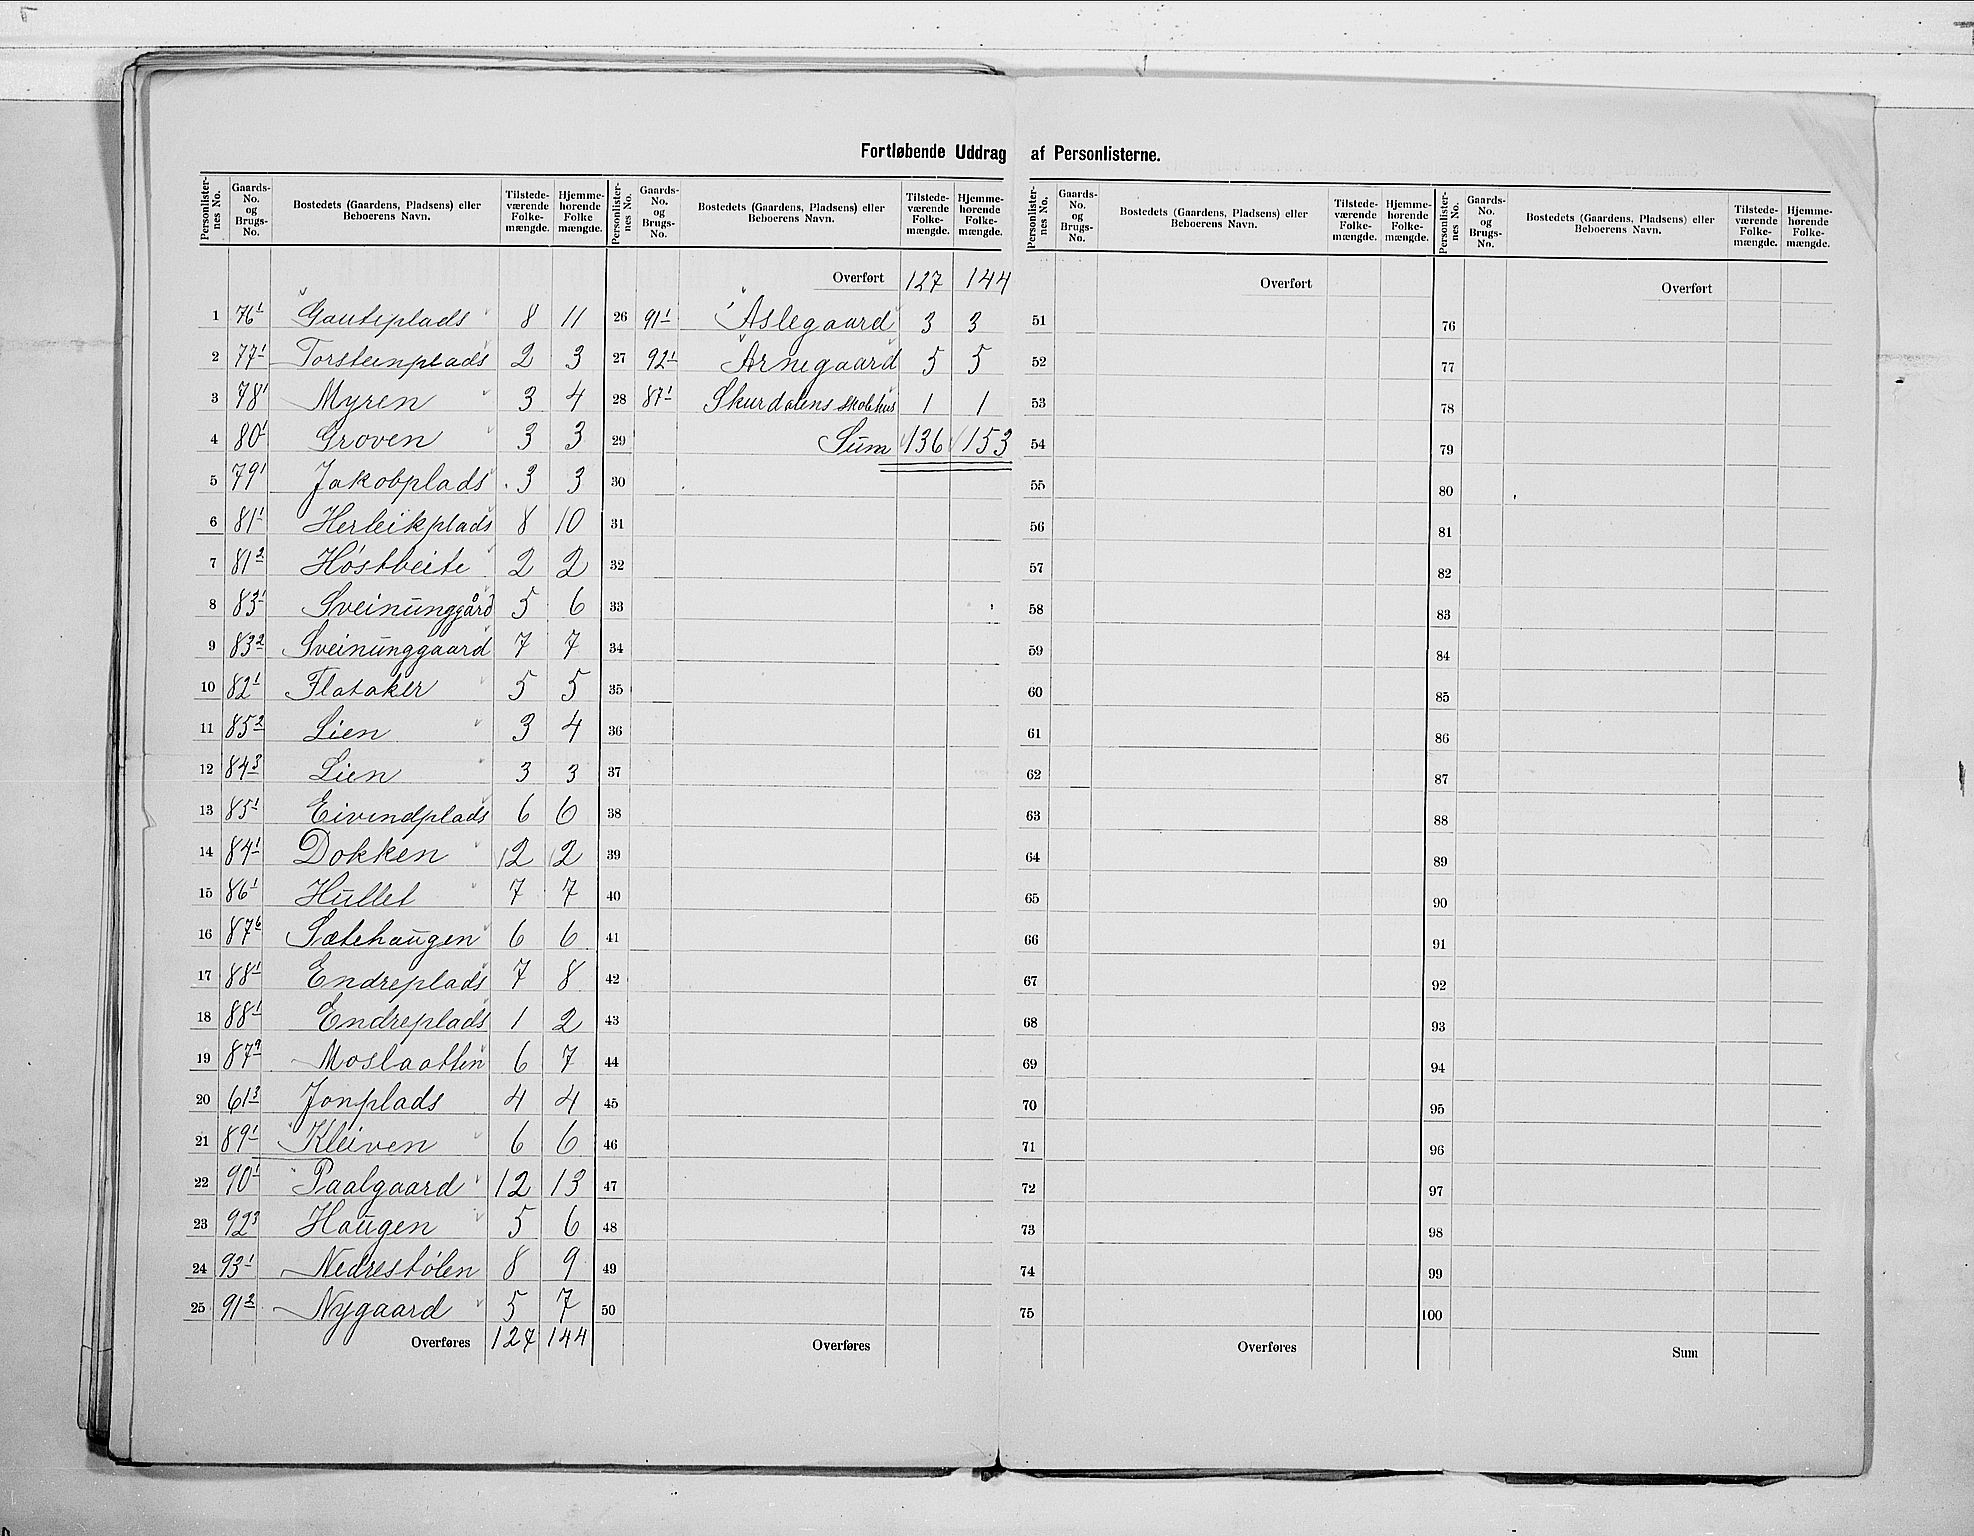 Fortløbende Uddrag af Personlisterne.
Personlister-nes No. | Gaards-No. og Brugs-No. | Bostedets (Gaardens, Pladsens) eller Beboerens Navn. | Tilstede-værende Folke-mængde. | Hjemme-hørende Folke mængde.
1 76¹ Gauteplads 8 11
2 77¹ Torsteinplads 2 3
3 78¹ Myren 3 4
4 80¹ Groven 3 3
5 79¹ Jakobplads 3 3
6 81¹ Herleikplads 8 10
7 81² Høstbeite 2 2
8 83¹ Sveinunggård 5 6
9 83² Sveinunggaard 7 7
10 82¹ Flataker 5 5
11 85² Lien 3 4
12 84³ Lien 3 3
13 85¹ Eivindplads 6 6
14 84¹ Dokken 2 2
15 86¹ Hullet 7 7
16 87⁶ Sætehaugen 6 6
17 88¹ Endreplads 7 8
18 88¹ Endreplads 1 2
19 87⁹ Moslaatten 6 7
20 61³ Jonplads 4 4
21 89¹ Kleiven 6 6
22 90¹ Paalgaard 12 13
23 92³ Haugen 5 6
24 93¹ Nedrestølen 8 9
25 91² Nygaard 5 7
Overføres 127 144
Personlister-nes No. | Gaards-No. og Brugs-No. | Bostedets (Gaardens, Pladsens) eller Beboerens Navn. | Tilstede-værende Folke-mængde. | Hjemme-hørende Folke-mængde.
Overført 127 144
26 91¹ Aslegaard 3 3
27 92¹ Arnegaard 5 5
28 87¹ Skurdalens skolehus 1 1
29 Sum 136 153
30
31
32
33
34
35
36
37
38
39
40
41
42
43
44
45
46
47
48
49
50
Overføres
Personlister-nes No. | Gaards-No. og Brugs-No. | Bostedets (Gaardens, Pladsens) eller Beboerens Navn. | Tilstede-værende Folke-mængde. | Hjemme-hørende Folke-mængde.
Overført
51
52
53
54
55
56
57
58
59
60
61
62
63
64
65
66
67
68
69
70
71
72
73
74
75
Overføres
Personlister-nes No. | Gaards-No. og Brugs-No. | Bostedets (Gaardens, Pladsens) eller Beboerens Navn. | Tilstede-værende Folke-mængde. | Hjemme-hørende Folke-mængde.
Overført
76
77
78
79
80
81
82
83
84
85
86
87
88
89
90
91
92
93
94
95
96
97
98
99
100
Sum